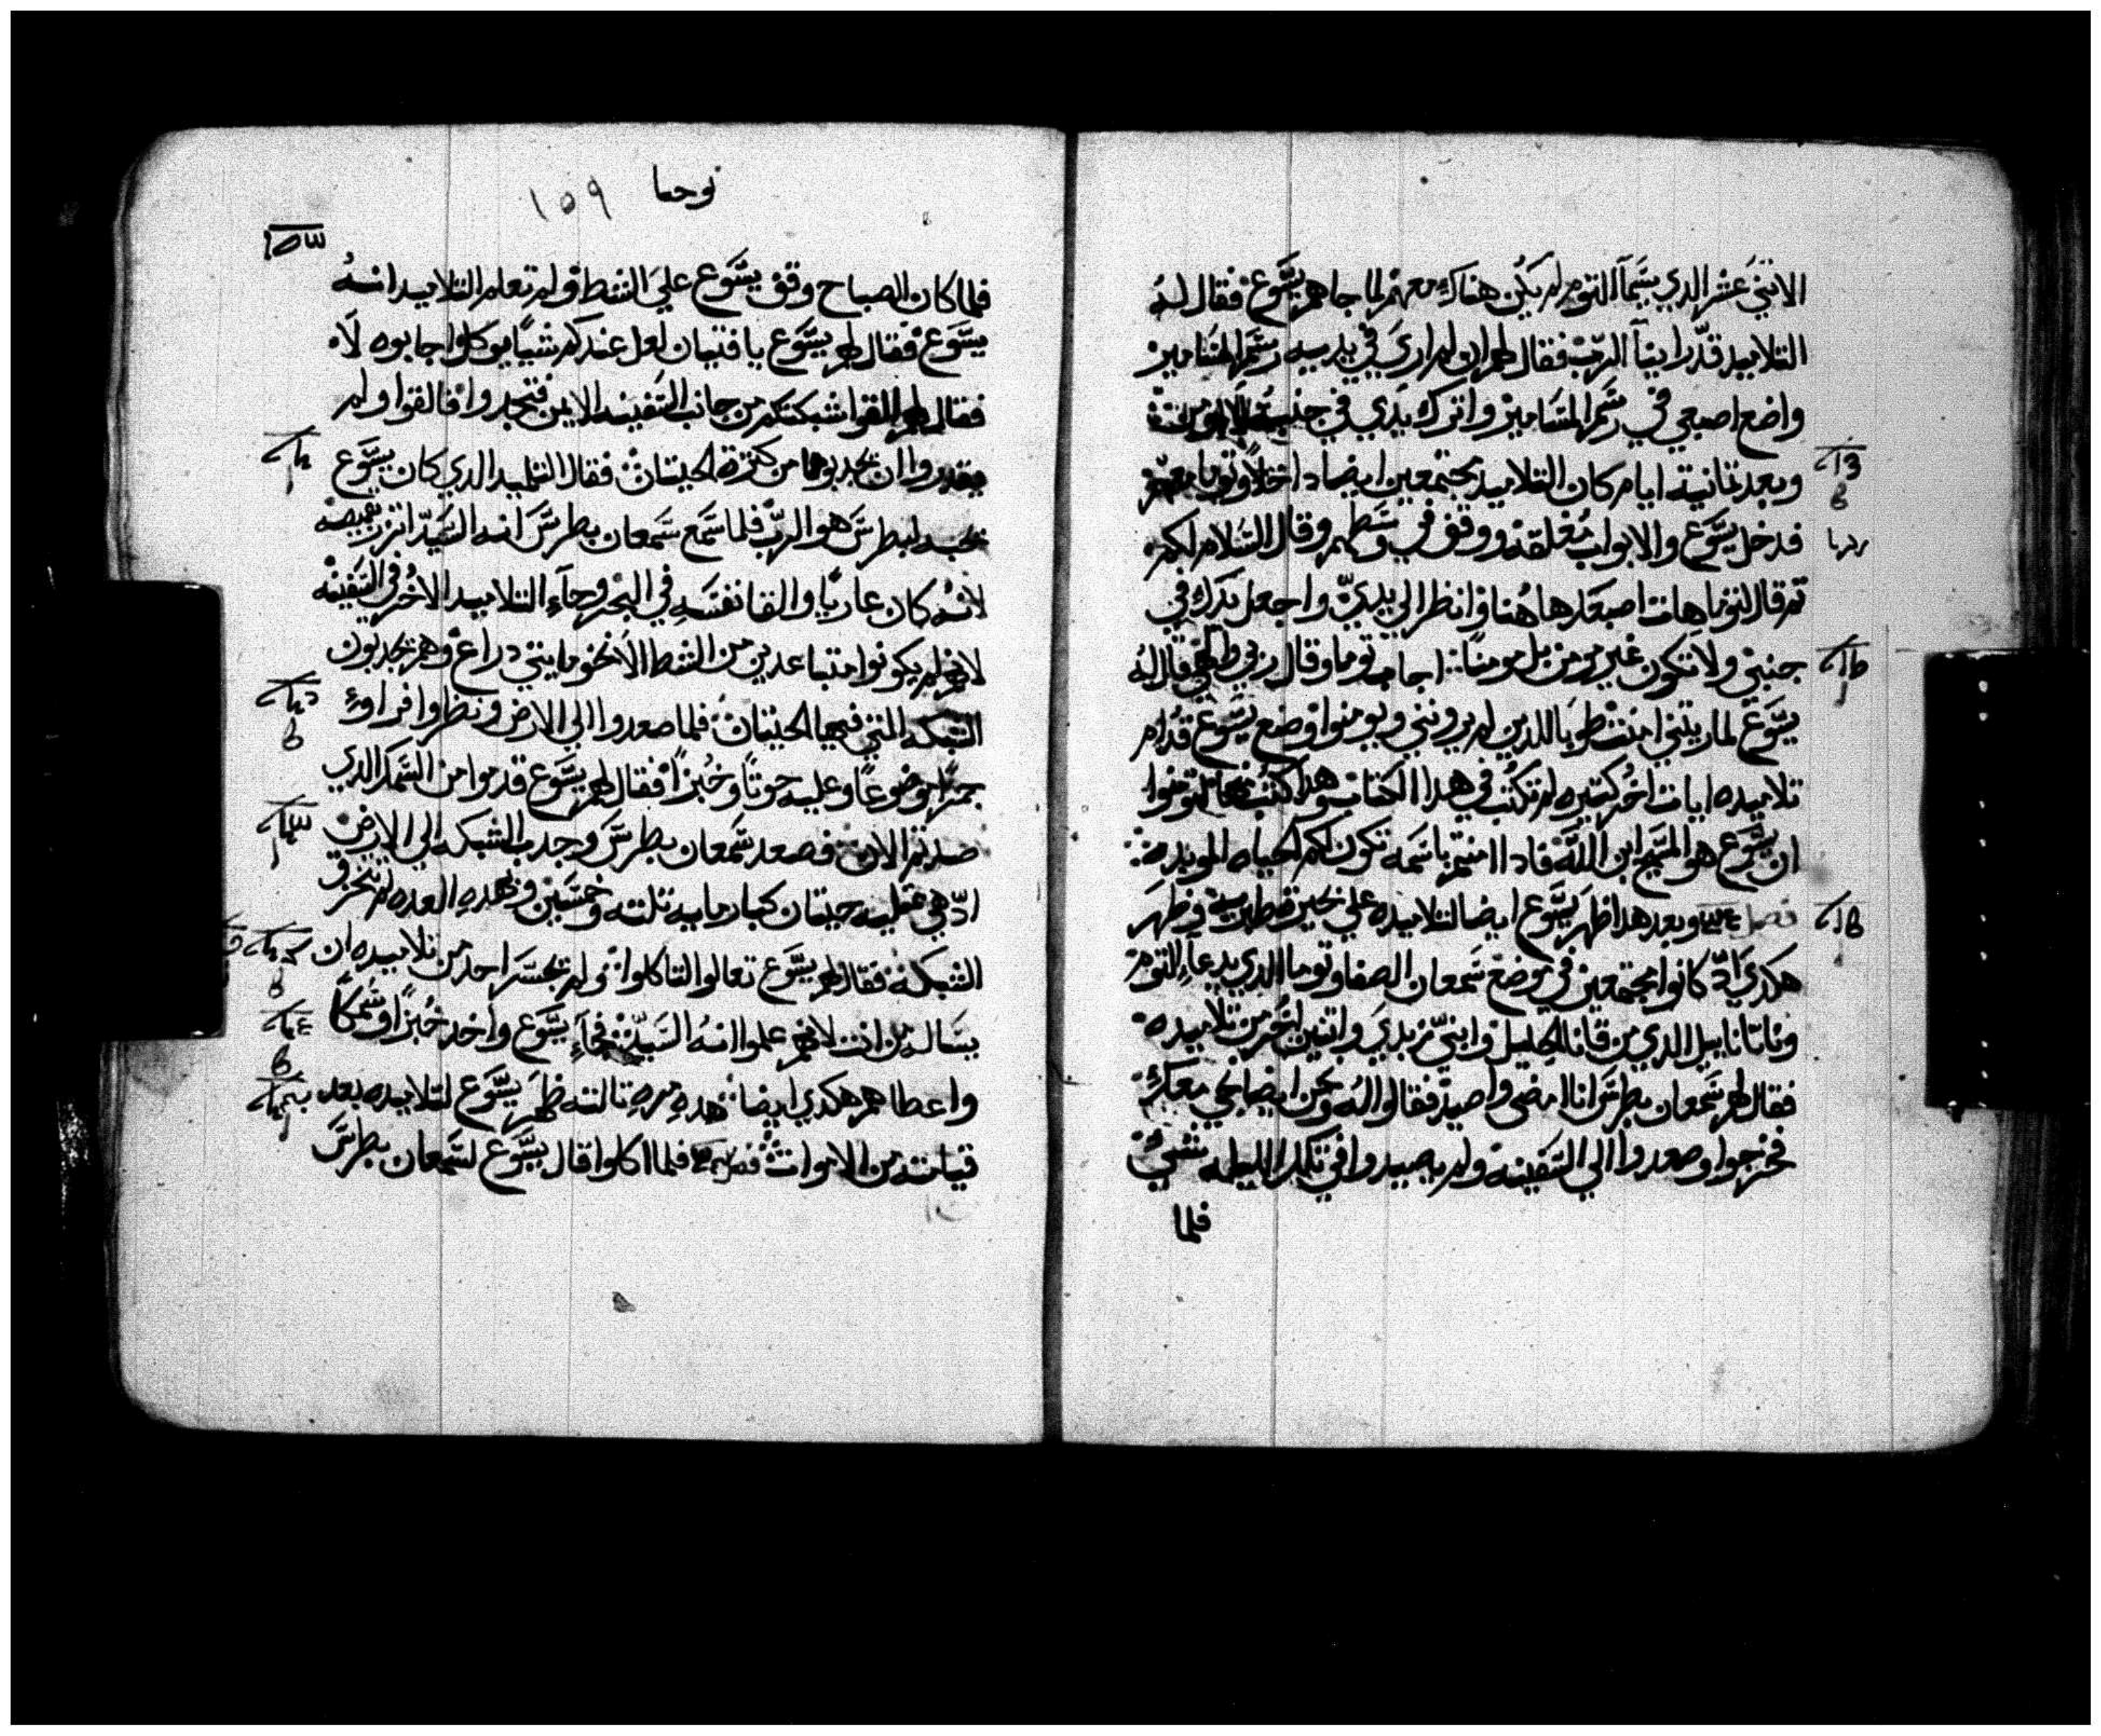 الاثني عشر الدي يسَّمآ التوم لم يكن هناك معهم لما جاهم يسَّوع فقال له
التلاميد قد راينآ الربّ فقال لهم ان لم اري في يديه رسَّم المسَّامير
واضع اصبعي في رسَّم المسَّامير واترك يدي في جنبه
وبعد تمانية ايام كان التلاميد مجتمعين ايضا داخلاً وتوما معهم
فدخل يسَّوع والابواب مُغلقه ووقف في وسَطهم وقال السَّلام لكم
تم قال لتوما هات اصبعك هاهُنا وانظر الي يديّ واجعل يدك في
جنبي ولا تكون غير مومن بل مومناً اجاب توما وقال ربي والهي قال له
يسَّوع لما ريتني امنت طوبا للدين لم يروني ويومنوا وصنع يسَّوع قدام
تلاميده ايات اخُر كتيره لم تكتب في هدا الكتاب وهدا كتب لتومنوا
ان يسَّوع هو المسَّيح ابن اللَّه فادا امنتم باسَّمه تكون لكم الحياه الموبده
فصل وبعد هدا ظهر يسَّوع ايضا لتلاميده علي بحيرة طبرية وظهر
هكدي ادّ كانوا مجتمعين في موضع سَّمعان الصفا وتوما الدي يدعآ التوم
وناتاناييل الدي من قانا الجليل وابنيّ زبدي واتنين اخُر من تلاميده
فقال لهم سَّمعان بطرسَّ انا امضي واصيد فقالوا له ونحن ايضا نجي معك
فخرجوا وصعدوا الي السَّفينه ولم يصيدوا في تلك الليله شيّ
فلما
يوحنا ١٥٩
فلما كان الصباح وقف يسَّوع علي الشط ولم تعلم التلاميد انهُ
يسَّوع فقال لهم يسَّوع يا فتيان لعل عندكم شياً يوكل اجابوه لاَ
فقال لهم القوا شبكتكم من جانب السَّفينه الايمن فتجدوا فالقوا ولم
يقدروا ان يجدبوها من كترة الحيتان فقال التلميد الدي كان يسَّوع
يحبه لبطرسَّ هو الربّ فلما سَّمع سَّمعان بطرسَّ انه السَّيّد اتزر بقميصه
لانهُ كان عارياً والقا نفسَه في البحر وجآء التلاميد الاخُر في السَّفينه
لانهم لم يكونوا متباعدين من الشط الا نحو مايتي دراع وهم يجدبون
الشبكه التي فيها الحيتان فلما صعدوا الي الارض ونظروا فراوءُ
جمراً موضوعاً وعليه حوتاً وخُبزاً فقال لهم يسَّوع قدموا من السَّمك الدي
صدتم الان فصعد سَّمعان بطرسَّ وجدب الشبكه الي الارض
ادّ هي ممتليه حيتان كبار مايه تلته وخمسَّين وبهده العده لم تنخرق
الشبكه فقال لهم يسَّوع تعالوا لتاكلوا ولم يجسَّر احد من تلاميده ان
يسَاله من انت لانهم علموا انهُ السَّيّد فجآء يسَّوع واخد خُبزاً وسَّمكاً
واعطاهم هكدي ايضا هده مره تالته ظهر يسَّوع لتلاميده بعد
قيامته من الاموات فصل فلما اكلوا قال يسَّوع لسَّمعان بطرسَّ